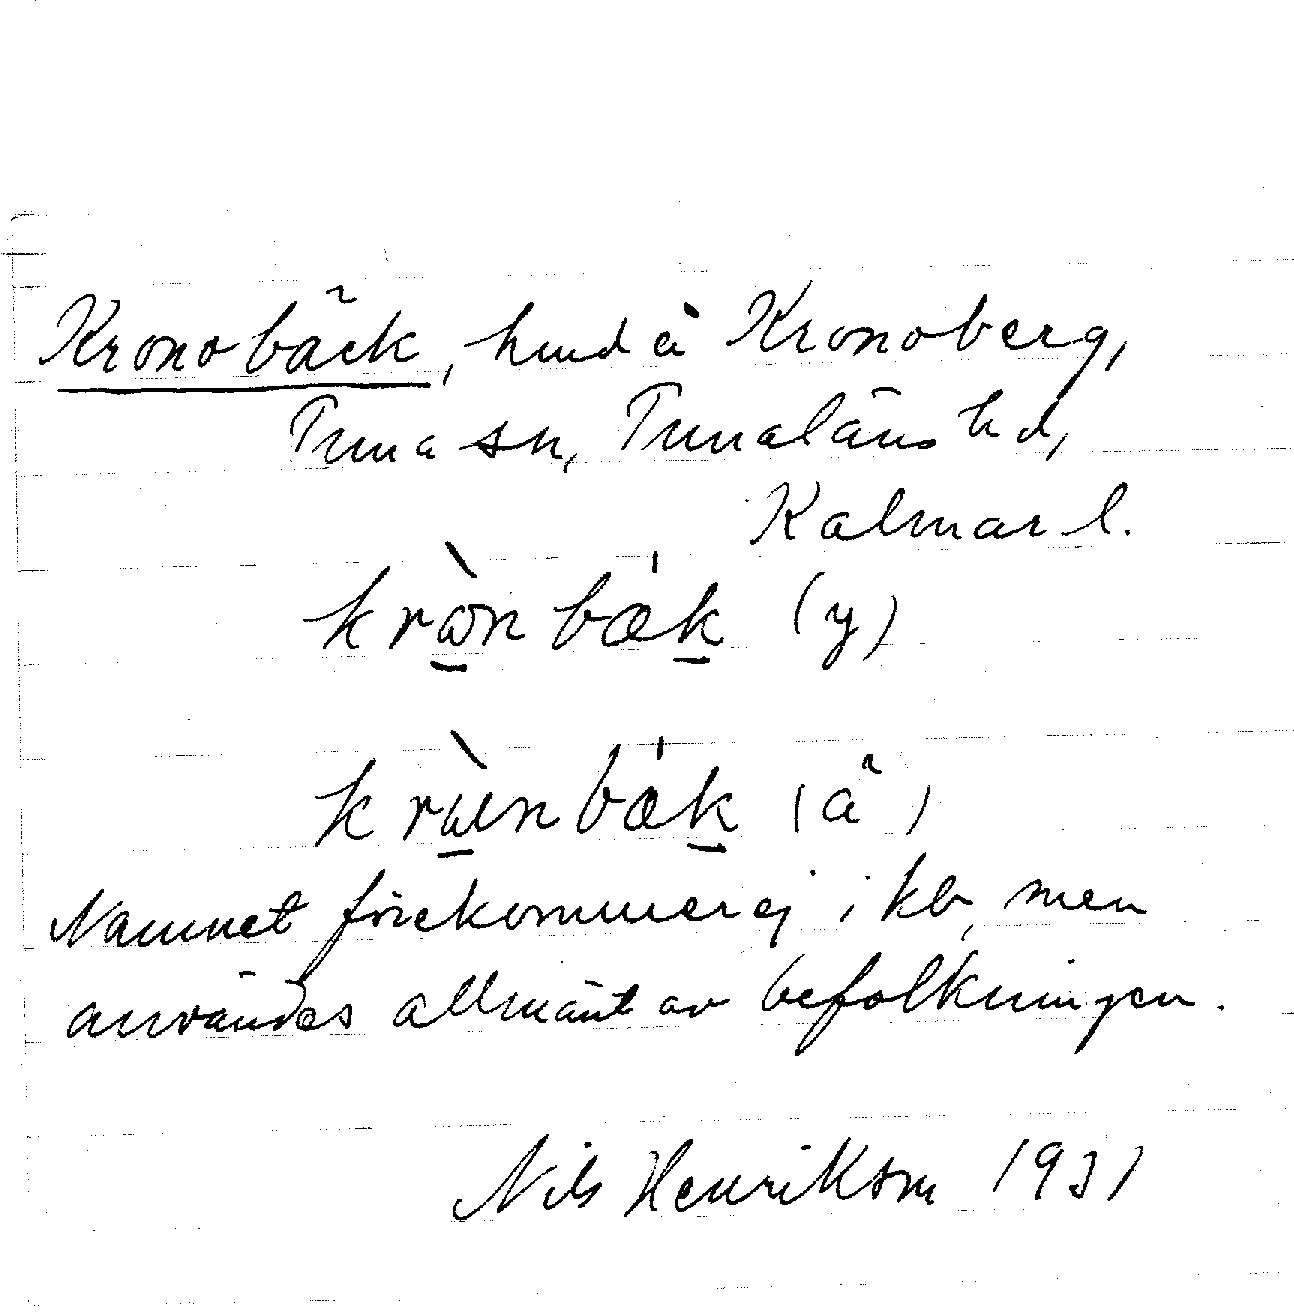 Kronobäck, hmd å Kronoberg,
Tuna sn, Tunaläns hd,
Kalmar l.
kròn bæk (y)
bæk (ä)
Namnet förekommer ej i kb, men
användes allmänt av befolkningen.
Nils Henrikson 1931